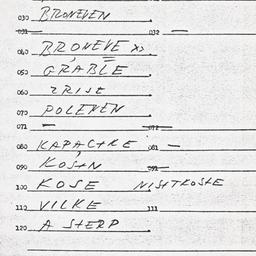 030 BRONEVEN
031 — 032 —
040 BRONEVE
050 GRABLE
060 ZRISE
070 POLEVEN
071 — 072 —
080 KAPACTKE 081 —
090 KOSTN 091 —
100 KOSE NISTKOSTE
110 VILKE 111
120 A STERP